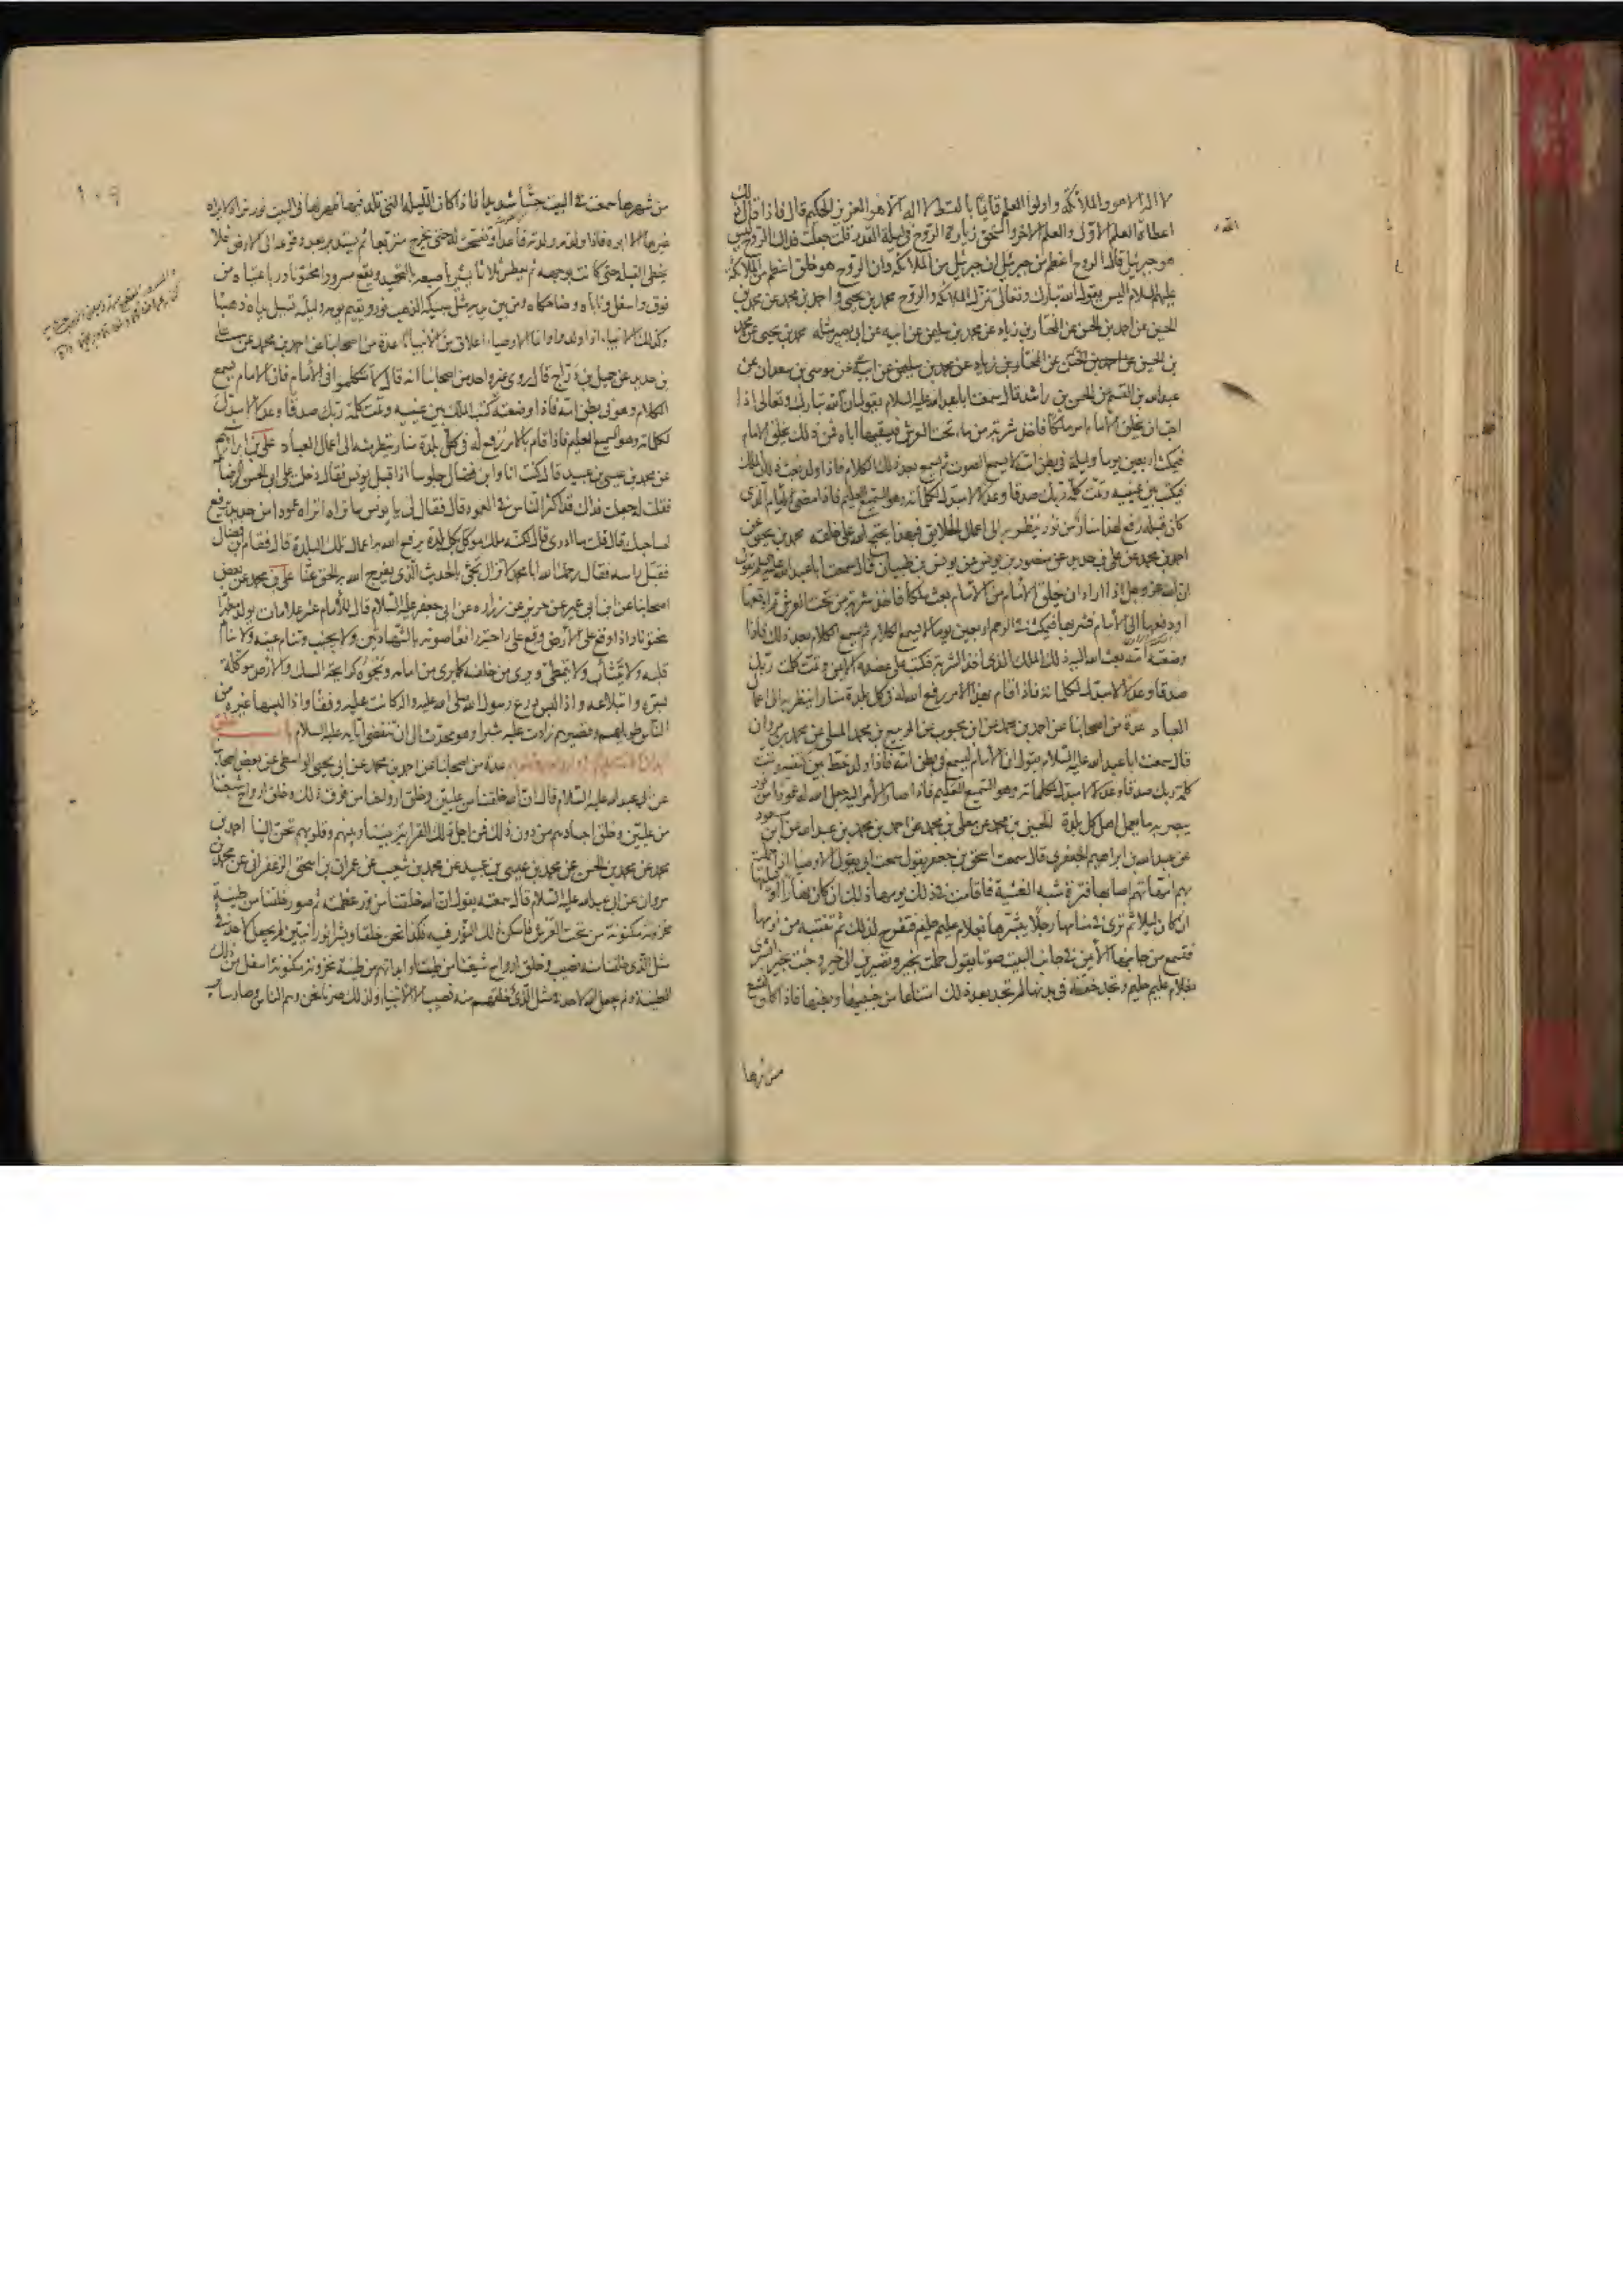 لا اله الا هو والملائكة واولوا العلم قائما بالقسط لا اله الا هو العزيز الحكيم قال فاذا قال ذلك
اعطاه العلم الاول والعلم الاخر واستحق زيارة الروح في ليلة القدر قلت جعلت فداك الروح ليس
هو جبرئيل قال الروح اعظم من جبرئيل ان جبرئيل من الملائكة وان الروح هو خلق اعظم من الملائكة
عليهم السلام اليس يقول الله تبارك وتعالى تنزل الملائكة والروح محمد بن يحيى واحمد بن محمد عن محمد بن
الحسين عن احمد بن الحسن عن المختار بن زياد عن محمد بن سليمن عن ابيه عن ابي بصير مثله محمد بن يحيى عن محمد
بن الحسين عن احمد بن الحسن عن المختار بن زياد عن محمد بن سليمن عن ابيه عن موسى بن سعدان عن
عبد الله بن القسم عن الحسن بن راشد قال سمعت ابا عبد الله عليه السلام يقول ان الله تبارك وتعالى اذا
احب ان يخلق الامام امر ملكا فاخذ شربة من ماء تحت العرش فيسقيها اباه فمن ذلك يخلق الامام
فيمكث اربعين يوما وليلة في بطن امه لا يسمع الصوت ثم يسمع بعد ذلك الكلام فاذا ولد بعث ذلك الملك
فيكتب بين عينيه وتمت كلمة ربك صدقا وعدلا لا مبدل لكلماته وهو السميع العليم فاذا مضى الامام الذي
كان قبله رفع لهذا منار من نور ينظر به الى اعمال الخلايق فبهذا يحتج الله على خلقه محمد بن يحيى عن
احمد بن محمد عن علي بن حديد عن منصور بن يونس عن يونس بن ظبيان قال سمعت ابا عبد الله عليه السلام يقول
ان الله عز وجل اذا اراد ان يخلق الامام من الامام بعث ملكا فاخذ شربة من تحت العرش ثم اوقعها
او دفعها الى الامام فشربها فيمكث في الرحم اربعين يوما لا يسمع الكلام ثم يسمع الكلام بعد ذلك فاذا
وضعته امه بعث الله اليه ذلك الملك الذي اخذ الشربة فكتب على عضده الايمن وتمت كلمت ربك
صدقا وعدلا لا مبدل لكلماته فاذا قام بهذا الامر رفع الله له في كل بلدة منارا ينظر به الى اعمال
العباد عدة من اصحابنا عن احمد بن محمد عن ابن محبوب عن الربيع بن محمد المسلي عن محمد بن مروان
قال سمعت ابا عبد الله عليه السلام يقول ان الامام ليسمع في بطن امه فاذا ولد خط بين كتفيه وتمت
كلمة ربك صدقا وعدلا لا مبدل لكلماته وهو السميع العليم فاذا صار الامر اليه جعل الله له عمودا من نور
يبصر به ما يعمل اهل كل بلدة الحسين بن محمد عن معلى بن محمد عن احمد بن محمد بن عبد الله عن ابن مسعود
عن عبد الله بن ابراهيم الجعفري قال سمعت اسحق بن جعفر يقول سمعت ابي يقول الاوصيا اذا حملت
بهم امهاتهم اصابها فترة شبه الغشية فاقامت في ذلك يومها ذلك ان كان نهارا او ليلتها
ان كان ليلا ثم ترى في منامها رجلا يبشرها بغلام عليم حليم فتفرح لذلك ثم تنتبه من نومها
فتسمع من جانبها الايمن في جانب البيت صوتا يقول حملت بخير وتصيرين الى خير وجئت بخير ابشري
بغلام عليم حليم وتجد خفة في بدنها ثم لم تجد بعد ذلك امتناعا من جنبيها وبطنها فاذا كان لتسع
من شهرها
من شهرها سمعت في البيت حسا شديدا فاذا كان الليلة التي تلد فيها ظهر لها في البيت نور تراه لا يراه
غيرها الا ابوه فاذا ولدته ولدته قاعدا وتفتحت له حتى يخرج متربعا ثم يستدير بعد وقوعه الى الارض فلا
يخطئ القبلة حتى كانت بوجهه ثم يعطس ثلاثا يشير باصبعه بالتحميد ويقع مسرورا مختونا ورباعيتاه من
فوق واسفل وناباه وضاحكاه ومن بين يديه مثل سبيكة الذهب نور ويقيم يومه وليلته تسيل يداه ذهبا
وكذلك الانبياء اذا ولدوا وانما الاوصياء اعلاق من الانبياء عدة من اصحابنا عن احمد بن محمد عن علي
بن حديد عن جميل بن دراج قال روى غير واحد من اصحابنا انه قال لا تتكلموا في الامام فان الامام يسمع
الكلام وهو في بطن امه فاذا وضعته كتب الملك بين عينيه وتمت كلمة ربك صدقا وعدلا لا مبدل
لكلماته وهو السميع العليم فاذا قام بالامر رفع له في كل بلدة منار ينظر منه الى اعمال العباد علي بن ابراهيم
عن محمد بن عيسى بن عبيد قال كنت انا وابن فضال جلوسا اذا قبل يونس فقال دخلت على ابي الحسن الرضا
فقلت له جعلت فداك قد اكثر الناس في العمود قال فقال لي يا يونس ما تراه اتراه عمودا من حديد يرفع
لصاحبك قال قلت ما ادري قال لكنه ملك موكل بكل بلدة يرفع الله به اعمال تلك البلدة قال فقام ابن فضال
فقبل راسه فقال رحمك الله ابا محمد لا تزال تجئ بالحديث الذي يفرج الله به الحق عنا علي بن محمد عن بعض
اصحابنا عن ابن ابي عمير عن حريز عن زرارة عن ابي جعفر عليه السلام قال للامام عشر علامات يولد مطهرا
مختونا واذا وقع على الارض وقع على راحته رافعا صوته بالشهادتين ولا يجنب وتنام عينه ولا ينام
قلبه ولا يتثأب ولا يتمطى ويرى من خلفه كما يرى من امامه ونجوه كرايحة المسك والارض موكلة
بستره وابتلاعه واذا لبس درع رسول الله صلى الله عليه واله كانت عليه وفقا واذا لبسها غيره من
الناس طويلهم وقصيرهم زادت عليه شبرا وهو محدث الى ان تنقضي ايامه عليه السلام باب خلق
عدة من اصحابنا عن احمد بن محمد عن ابي يحيى الواسطي عن بعض اصحابنا
عن ابي عبد الله عليه السلام قال ان الله خلقنا من عليين وخلق ارواحنا من فوق ذلك وخلق ارواح شيعتنا
من عليين وخلق اجسادهم من دون ذلك فمن اجل ذلك القرابة بيننا وبينهم وقلوبهم تحن الينا احمد بن
محمد عن محمد بن الحسن عن محمد بن عيسى بن عبيد عن محمد بن شعيب عن عمران بن اسحق الزعفراني عن محمد بن
مروان عن ابي عبد الله عليه السلام قال سمعته يقول ان الله خلقنا من نور عظمته ثم صور خلقنا من طينة
مخزونة مكنونة من تحت العرش فاسكن ذلك النور فيه فكنا نحن خلقا وبشرا نورانيين لم يجعل لاحد في
مثل الذي خلقنا منه نصيب وخلق ارواح شيعتنا من طينتنا وابدانهم من طينة مخزونة مكنونة اسفل من ذلك
الطينة ولم يجعل الله لاحد في مثل الذي خلقهم منه نصيبا الا للانبياء ولذلك صرنا نحن وهم الناس وصار ساير